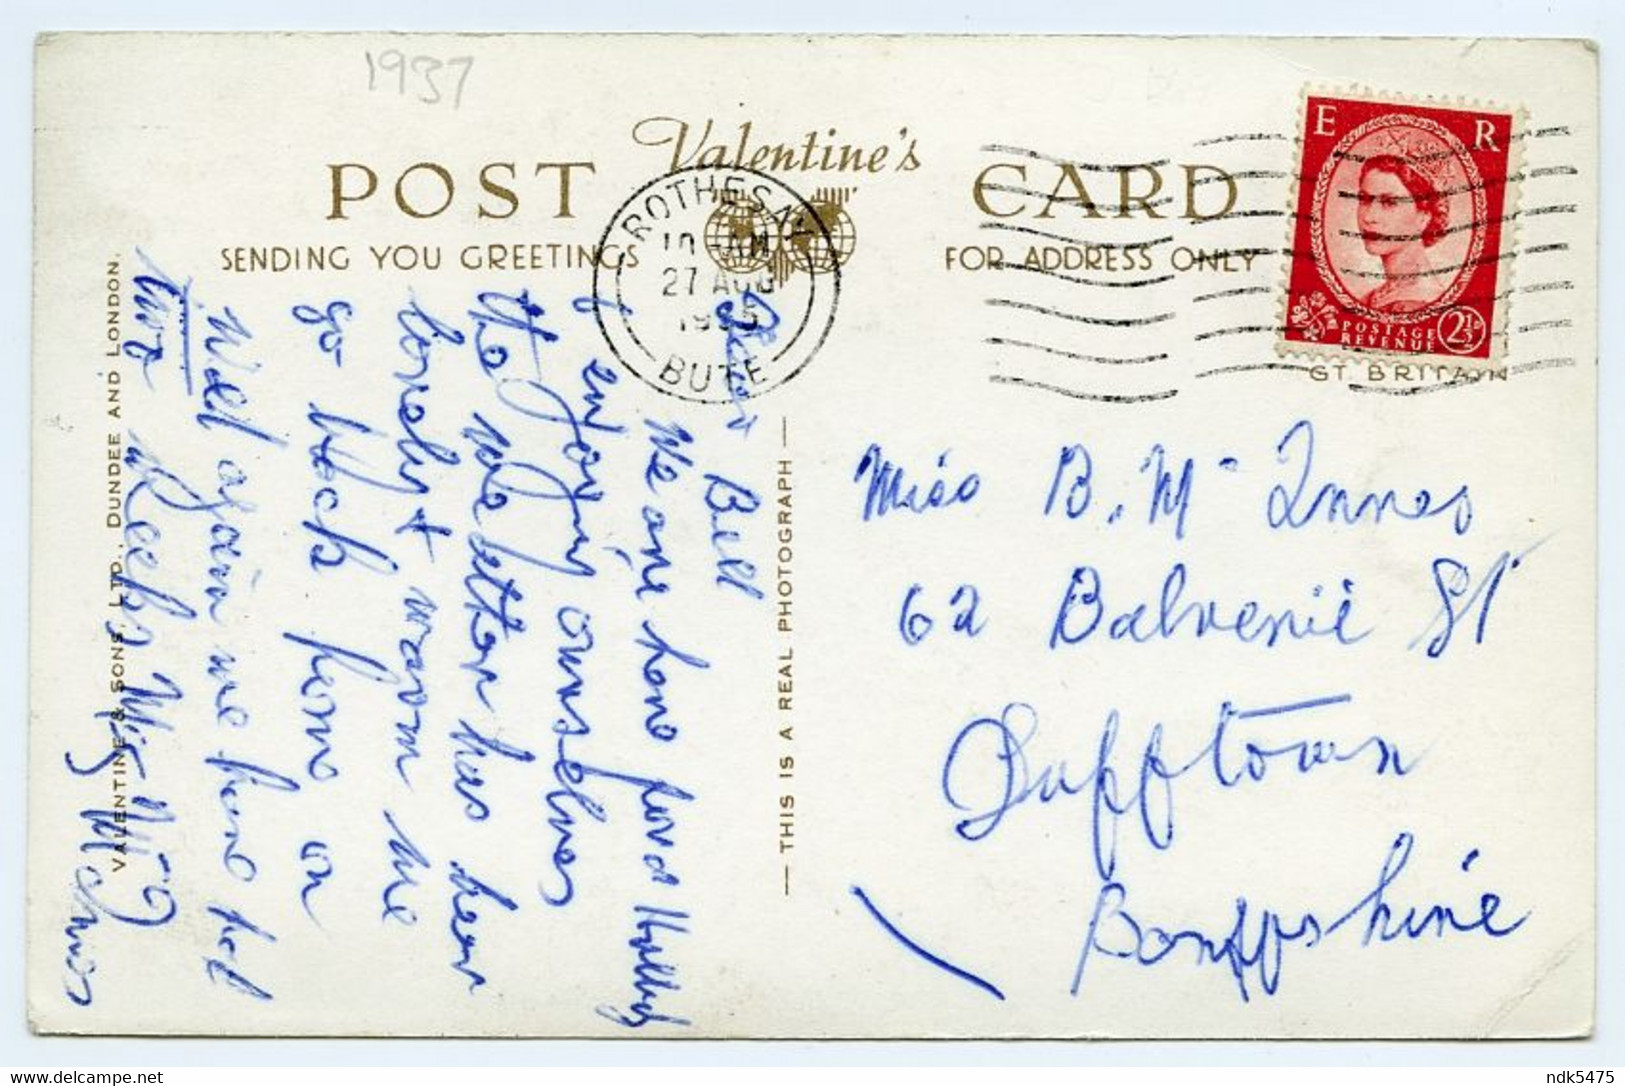 1937
Valentine's
POST CARD
SENDING YOU GREETINGS
FOR ADDRESS ONLY
ROTHESAY
10-AM
27 AUG
1955
BUTE
E R
POSTAGE
REVENUE
2½D
GT. BRITAIN
VALENTINE & SONS, LTD., DUNDEE AND LONDON.
— THIS IS A REAL PHOTOGRAPH —
Dear Bell
We are here for a Holiday
& enjoying ourselves
the weather has been
lovely & warm we
go back home on
Wed again we have had
two Weeks
McInnes
Miss B. Mc Innes
62 Balvenie St
Dufftown
Banffshire
ndk5475